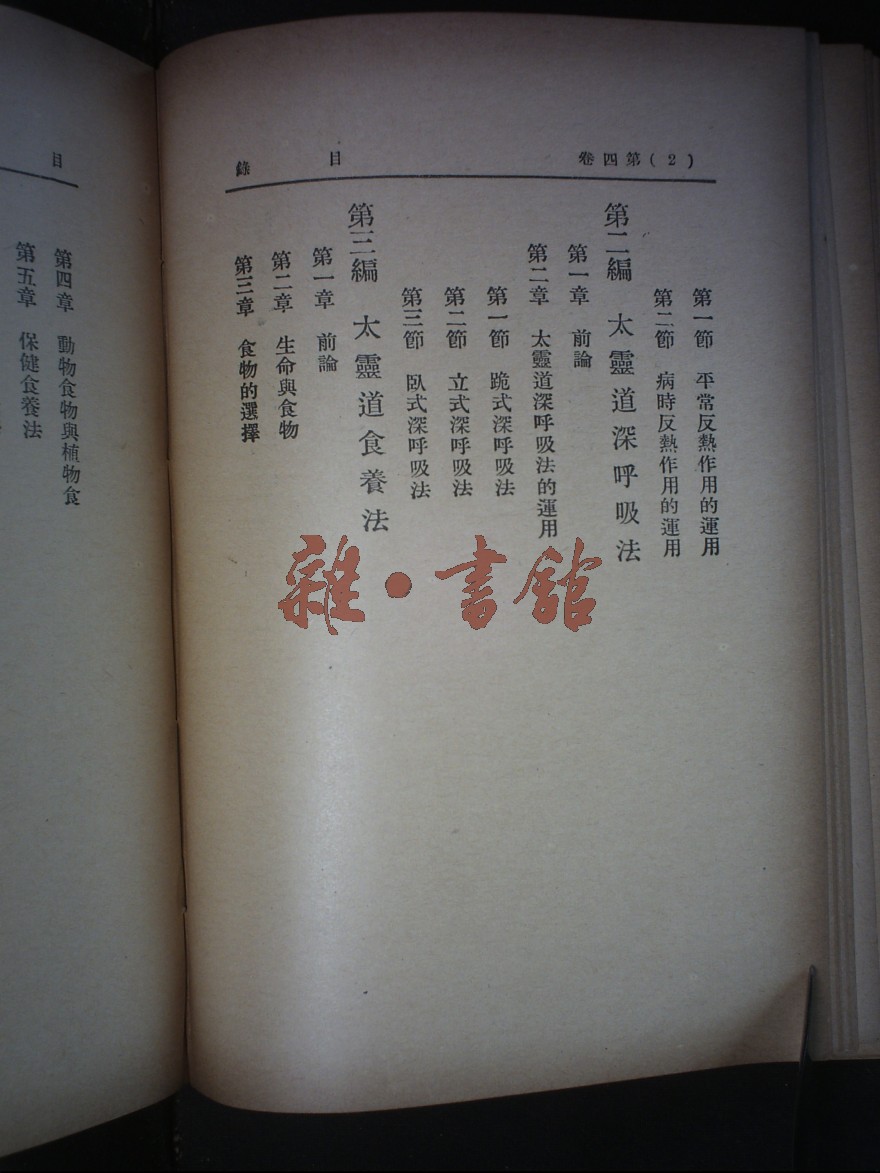 (2)第四卷　目　錄
第一節　平常反熱作用的運用
第二節　病時反熱作用的運用
第二編　太靈道深呼吸法
第一章　前論
第二章　太靈道深呼吸法的運用
第一節　跪式深呼吸法
第二節　立式深呼吸法
第三節　臥式深呼吸法
第三編　太靈道食養法
第一章　前論
第二章　生命與食物
第三章　食物的選擇
目
第四章　動物食物與植物食
第五章　保健食養法
雜·書館